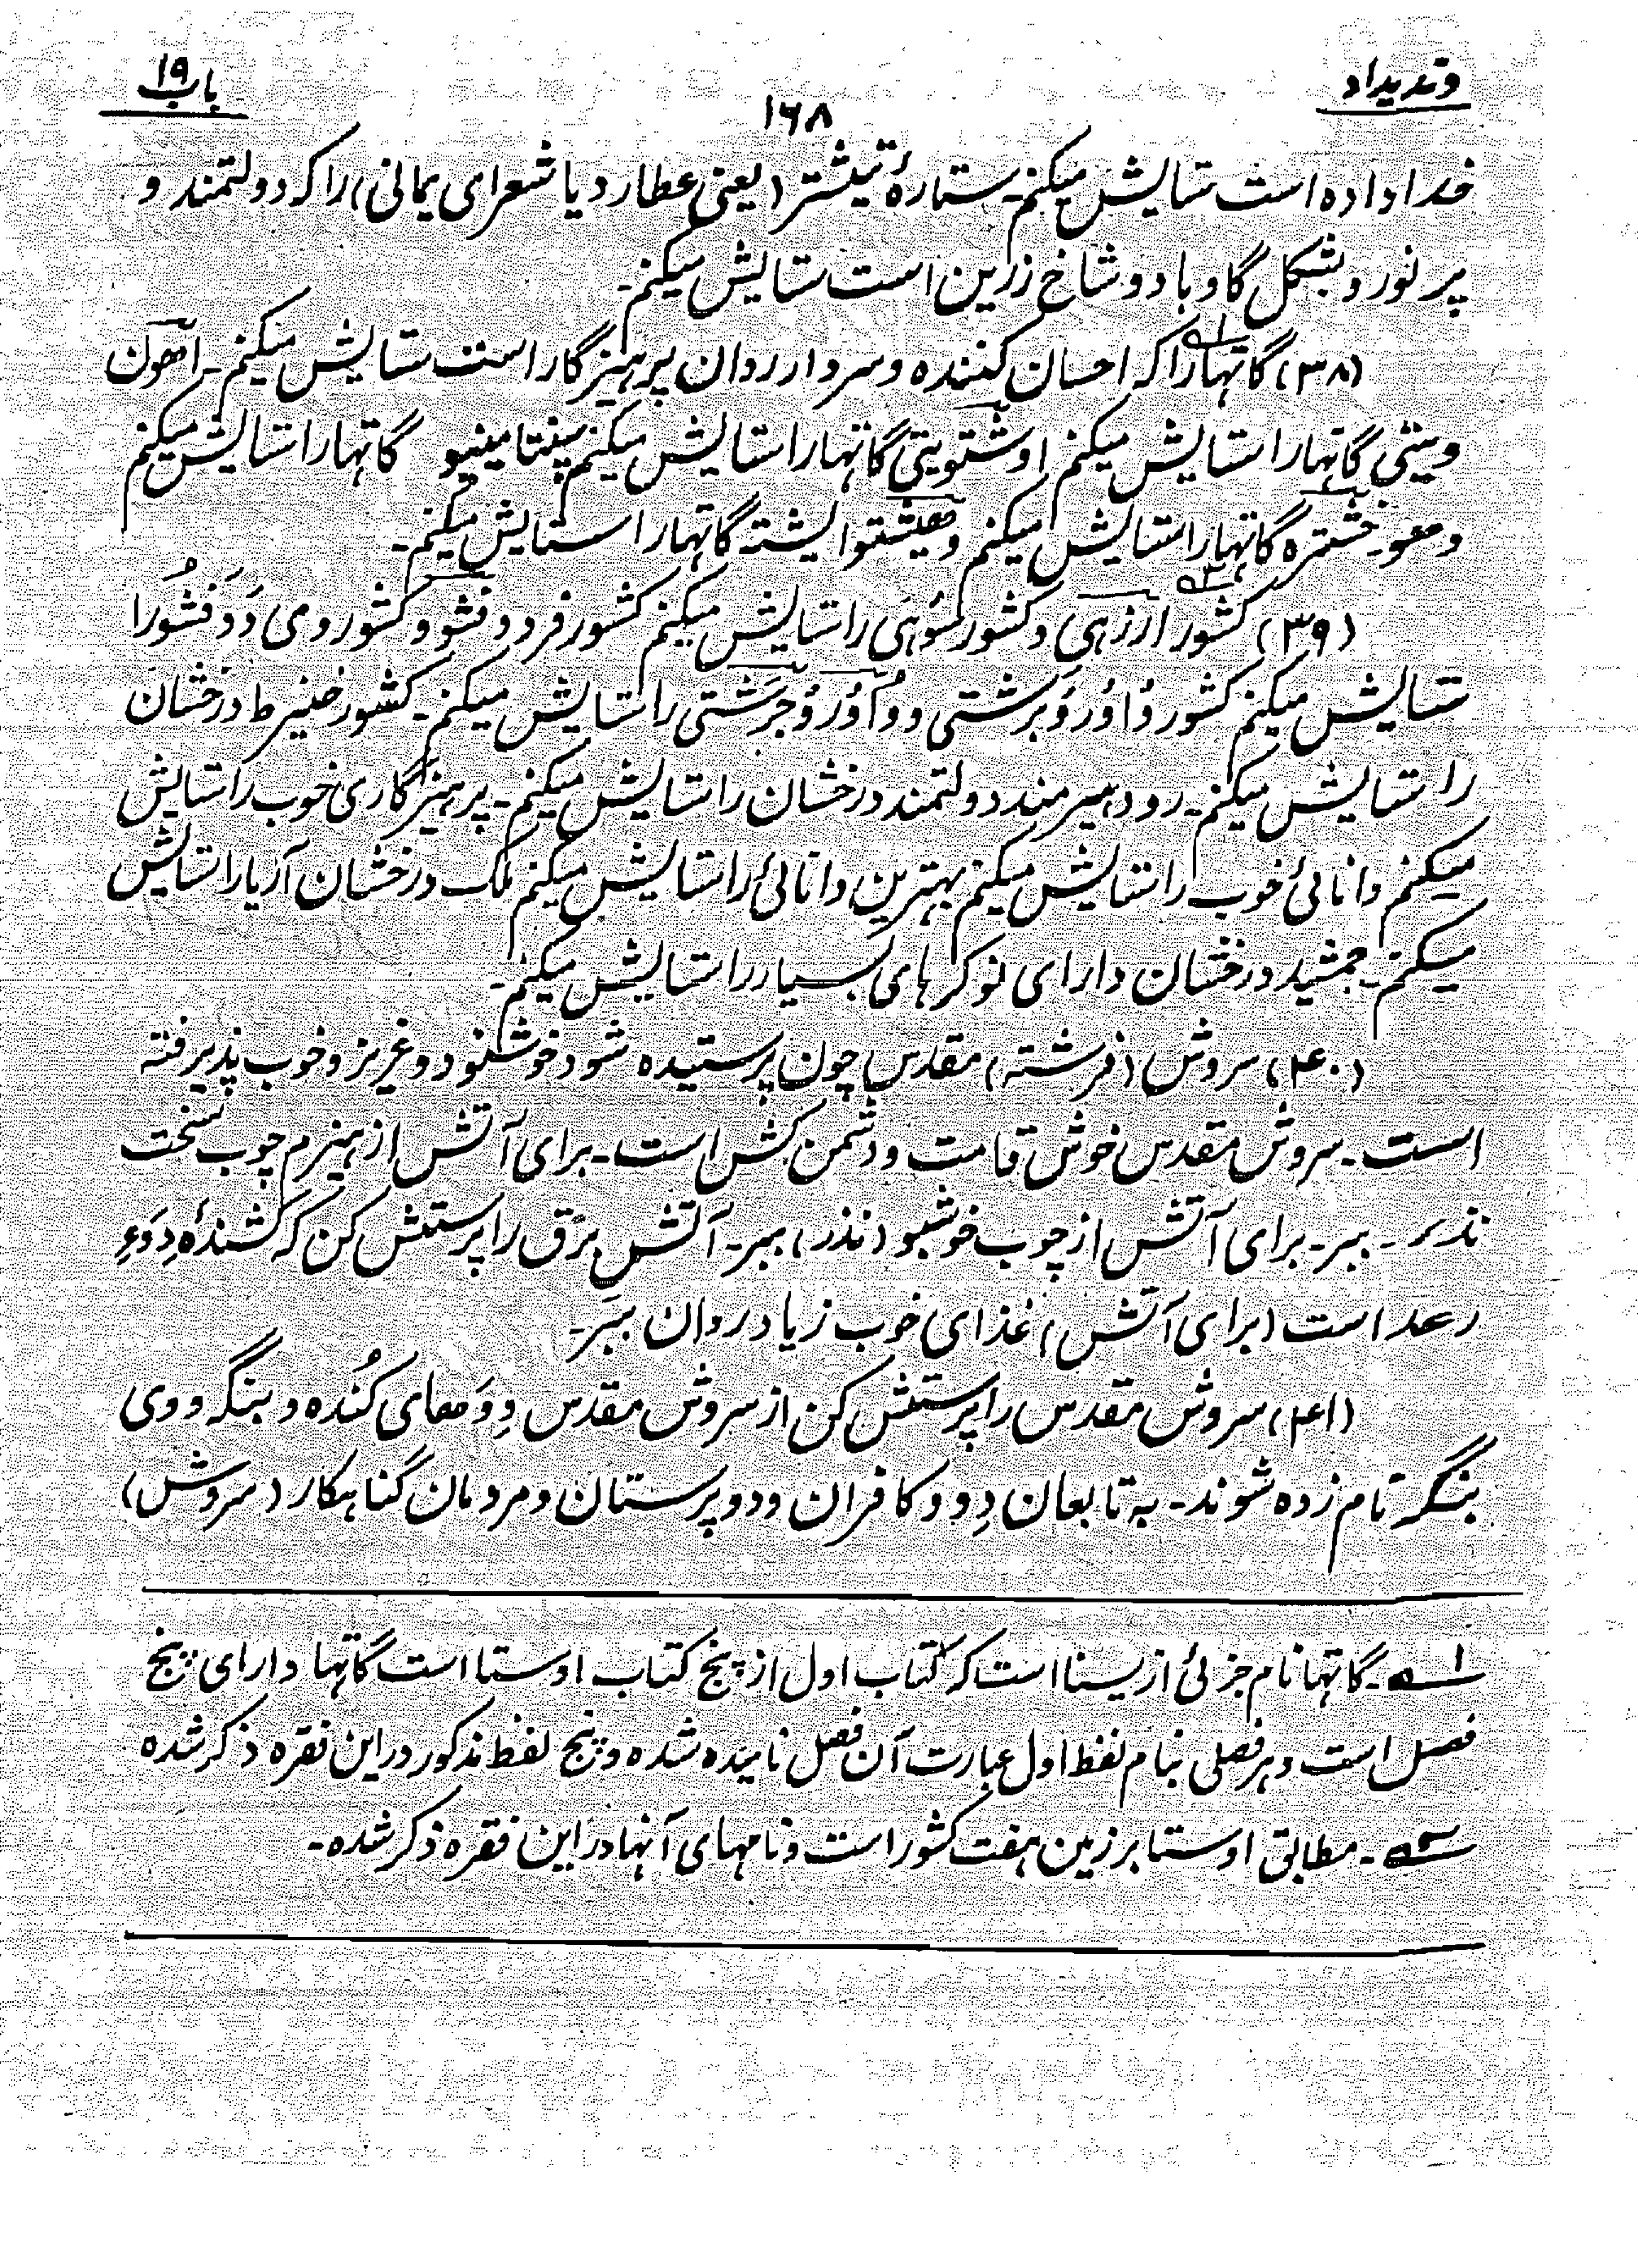 وندیداد
۱۶۸
باب ۱۹
خدا داده است ستایش میکنم۔ ستارهٔ تیشتر (یعنی عطارد یا شعرای یمانی) را که دولتمند و
پر نور و بشکل گاو با دو شاخ زرین است ستایش میکنم۔
(۳۸) گاتها را که احسان کننده و سردار ردان پرهیزگار است ستایش میکنم۔ اهون
ویتی گاتها را ستایش میکنم اوشتویتی گاتها را ستایش میکنم سپنتامینیو گاتها را ستایش میکنم
وهو۔ خشتره گاتها را ستایش میکنم وهیشتوایشته گاتها را ستایش میکنم۔
(۳۹) کشور ارزهی و کشور سوهی را ستایش میکنم کشور فردد فشو و کشور ومی دَدَ فشو را
ستایش میکنم کشور وُااُورُوبرشتی و وُااُورُوجَرَشتی را ستایش میکنم۔ کشور خنیرط درخشان
را ستایش میکنم۔ رود هیرمند دولتمند درخشان را ستایش میکنم۔ پرهیزگاری خوب را ستایش
میکنم دانائی خوب را ستایش میکنم بهترین دانائی را ستایش میکنم ملک درخشان آریا را ستایش
میکنم۔ جمشید درخشان دارای نوکرهای بسیار را ستایش میکنم۔
(۴۰) سروش (فرشته) مقدس چون پرستیده شود خوشنود و عزیز و خوب پذیرفته
است۔ سروش مقدس خوش قامت و دشمن کش است۔ برای آتش از هیزم چوب سخت
نذر۔ ببر۔ برای آتش از چوب خوشبو (نذر) ببر۔ آتش برق را پرستش کن که کشندهٔ دِوِ
رعد است (برای آتش) غذای خوب زیاد روان ببَر۔
(۴۱) سروش مقدس را پرستش کن از سروش مقدس دِوَهای کُنده و بنگه و وی
بنگه نام زده شوند۔ به تابعان دِو و کافران و دو پرستان و مردمان گناهکار (سروش)
۱ـه۔ گاتها نام جزئی از یسنا است که کتاب اول از پنج کتاب اوستا است گاتها دارای پنج
فصل است و هر فصلی بنام لفظ اول عبارت آن فصل نامیده شده و پنج لفظ مذکور در این فقره ذکر شده
۲ـه۔ مطابق اوستا بر زمین هفت کشور است و نامهای آنها در این فقره ذکر شده۔